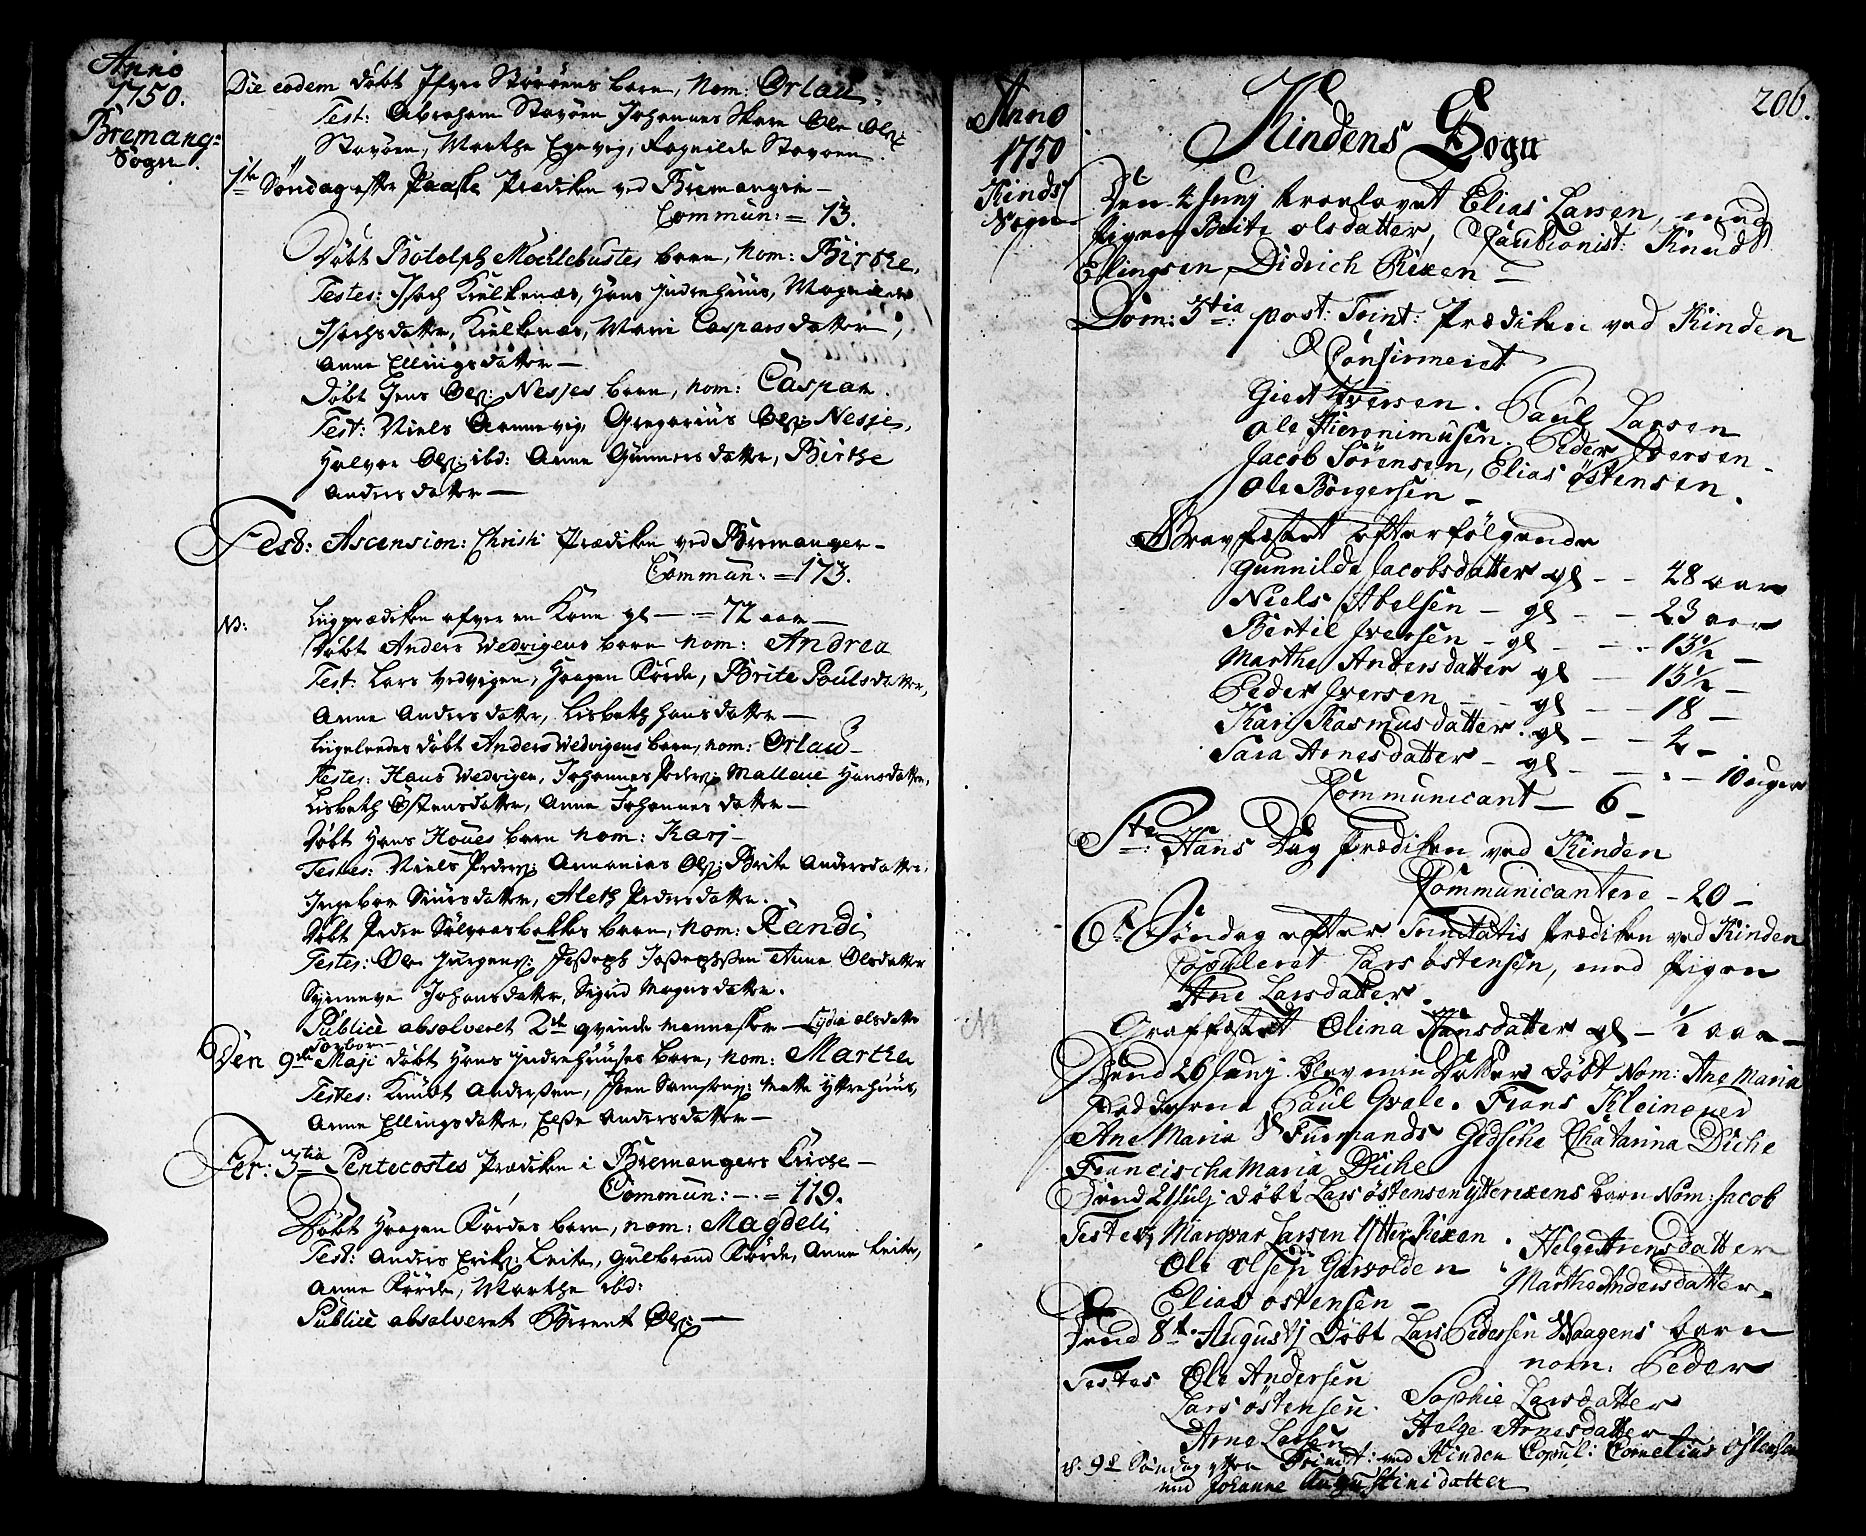 Anno
1750.
Bremang=
Sogn.
Die eodem döbt Ifver Störöens barn, nom: Orlau.
Test: Abraham Storöen Johannes Skare Ole Ols:
Storöen, Marthe Egevig, Ragnilde Storöen.
1te Söndag efter Paaske Prædiken ved Bremanger –
Commun: = 13.
Döbt Botolph Mochlebustes barn, nom: Birthe,
Testes: Isach Kielkenæs, Hans Indrehuus, Magnilde
Isachsdatter, Kielkenæs, Marie Caspersdatter,
Anne Ellingsdatter –
Döbt Jens Ols: Nesjes barn, nom: Caspar.
Test: Niels Aannevig, Gregorius Ols: Nesje,
Halvor Ols: ibd: Anne Gunnersdatter, Birthe
Andersdatter –
Fest: Ascension: Christi Prædiken ved Bremanger –
Commun: = 173.
NB: Liigprædiken ofver en Kone gl – = 72 aar –
Döbt Anders Vedvigens barn nom: Andrea
Test: Lars Vedvigen, Haagen Förde, Brite Poulsdatter,
Anne Andersdatter, Lisbeth Hansdatter –
Liigeledes döbt Anders Vedvigens barn, nom: Orlau –
Testes: Hans Vedvigen, Johannes Peders: Mallene Hansdatter,
Lisbeth Östensdatter, Anne Johannesdatter –
Döbt Hans Houes barn nom: Karj –
Testes: Niels Peders: Annanias Ols: Brite Andersdatter,
Ingebor Siursdatter, Aleth Pedersdatter.
Döbt Peder Sölversbakkes barn, nom: Randi
Testes: Ole Jurgens: Joseph Josephssen Anne Olsdatter
Synneve Johansdatter, Sigrid Mognsdatter.
Publice absolveret 2de qvinde mennesker – Lydia olsdatter
Den 9de Maji döbt Hans Indrehuuses barn, nom: Marthe
Testes: Knudt Anderssen, Iver Samsons: Mette Yttrehuus,
Anne Ellingsdatter, Else Andersdatter –
Fer: 3tia Pentecostes Prædiken i Bremangers Kirche –
Commun: – = 119.
Döbt Haagen Fördes barn, nom: Magdeli
Test: Anders Eriks: Leite, Gulbrand Förde, Anne Leite,
Anne Förde, Marthe ibd:
Publice absolveret Berent Ols: –
Anno
1750
Kinds
Sogn
206.
Kindens Sogn
Den 4 Junj trolovet Elias Larsen, med
Pigen Brite olsdatter, Cautionist: Knud
Elingsen, Didrich Rixen –
Dom: 3tia post: Trint: Prædiken ved Kinden
Confirmeret
Giert Iversen. Paul Larsen
Ole Hieronimusen. Peder Iversen –
Jacob Sörensen, Elias Östensen.
Ole Börgersen –
Gravfæstet efterfölgende
Gunnilde Jacobsdatter gl – – 48 aar
Niels Abelsen – gl – – 23 aar
Bertil Iversen – gl – – 13½
Marthe Andersdatter gl – 13½ –
Peder Iversen – – gl – – 18 –
Kari Rasmusdatter. gl – – 4 –
Sara Arnesdatter – gl – – – 10 uger
Communicant – 6 –
Ste Hans Dag Prædiken ved Kinden
Communicantere – 20 –
6te Söndag efter Trinitatis Prædiken ved Kinden
Copuleret Lars östensen, med Pigen
Ane Larsdatter.
Graffæstet Olina Hansdatter gl – ½ aar –
Dend 26 Junj blev min Datter Döbt Nom: Ane Maria
Fadderne Paul Qvale. Frans Kleinener
Ane Maria Sl Furmands Gedsche Chatarina Diche
Francischa Maria Diche
Dend 21 Julj döbt Lars östensen ytterixens barn Nom: Jacob
Testes, Marqvar Larsen Ytter Rixen. Helge Arensdatter
Ole olsen Garvolden. Marthe Andersdatter.
Elias ostensen –
Dend 8t Augustj Döbt Lars Pedersen Waagens barn
nom: Peder
Testes Ole Andersen
Lars östensen. Sophie Larsdatter
Arne Larsen Helge Arnesdatter
d. 9de Söndag efter Trinit: ved Kinden Copul: Cornelius Ostensen
med Johanne Augustinidatter